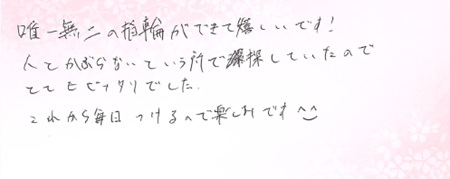 唯一無二の指輪ができて嬉しいです！
人とかぶらないという所で探していたので
とてもピッタリでした。
これから毎日つけるので楽しみです^^